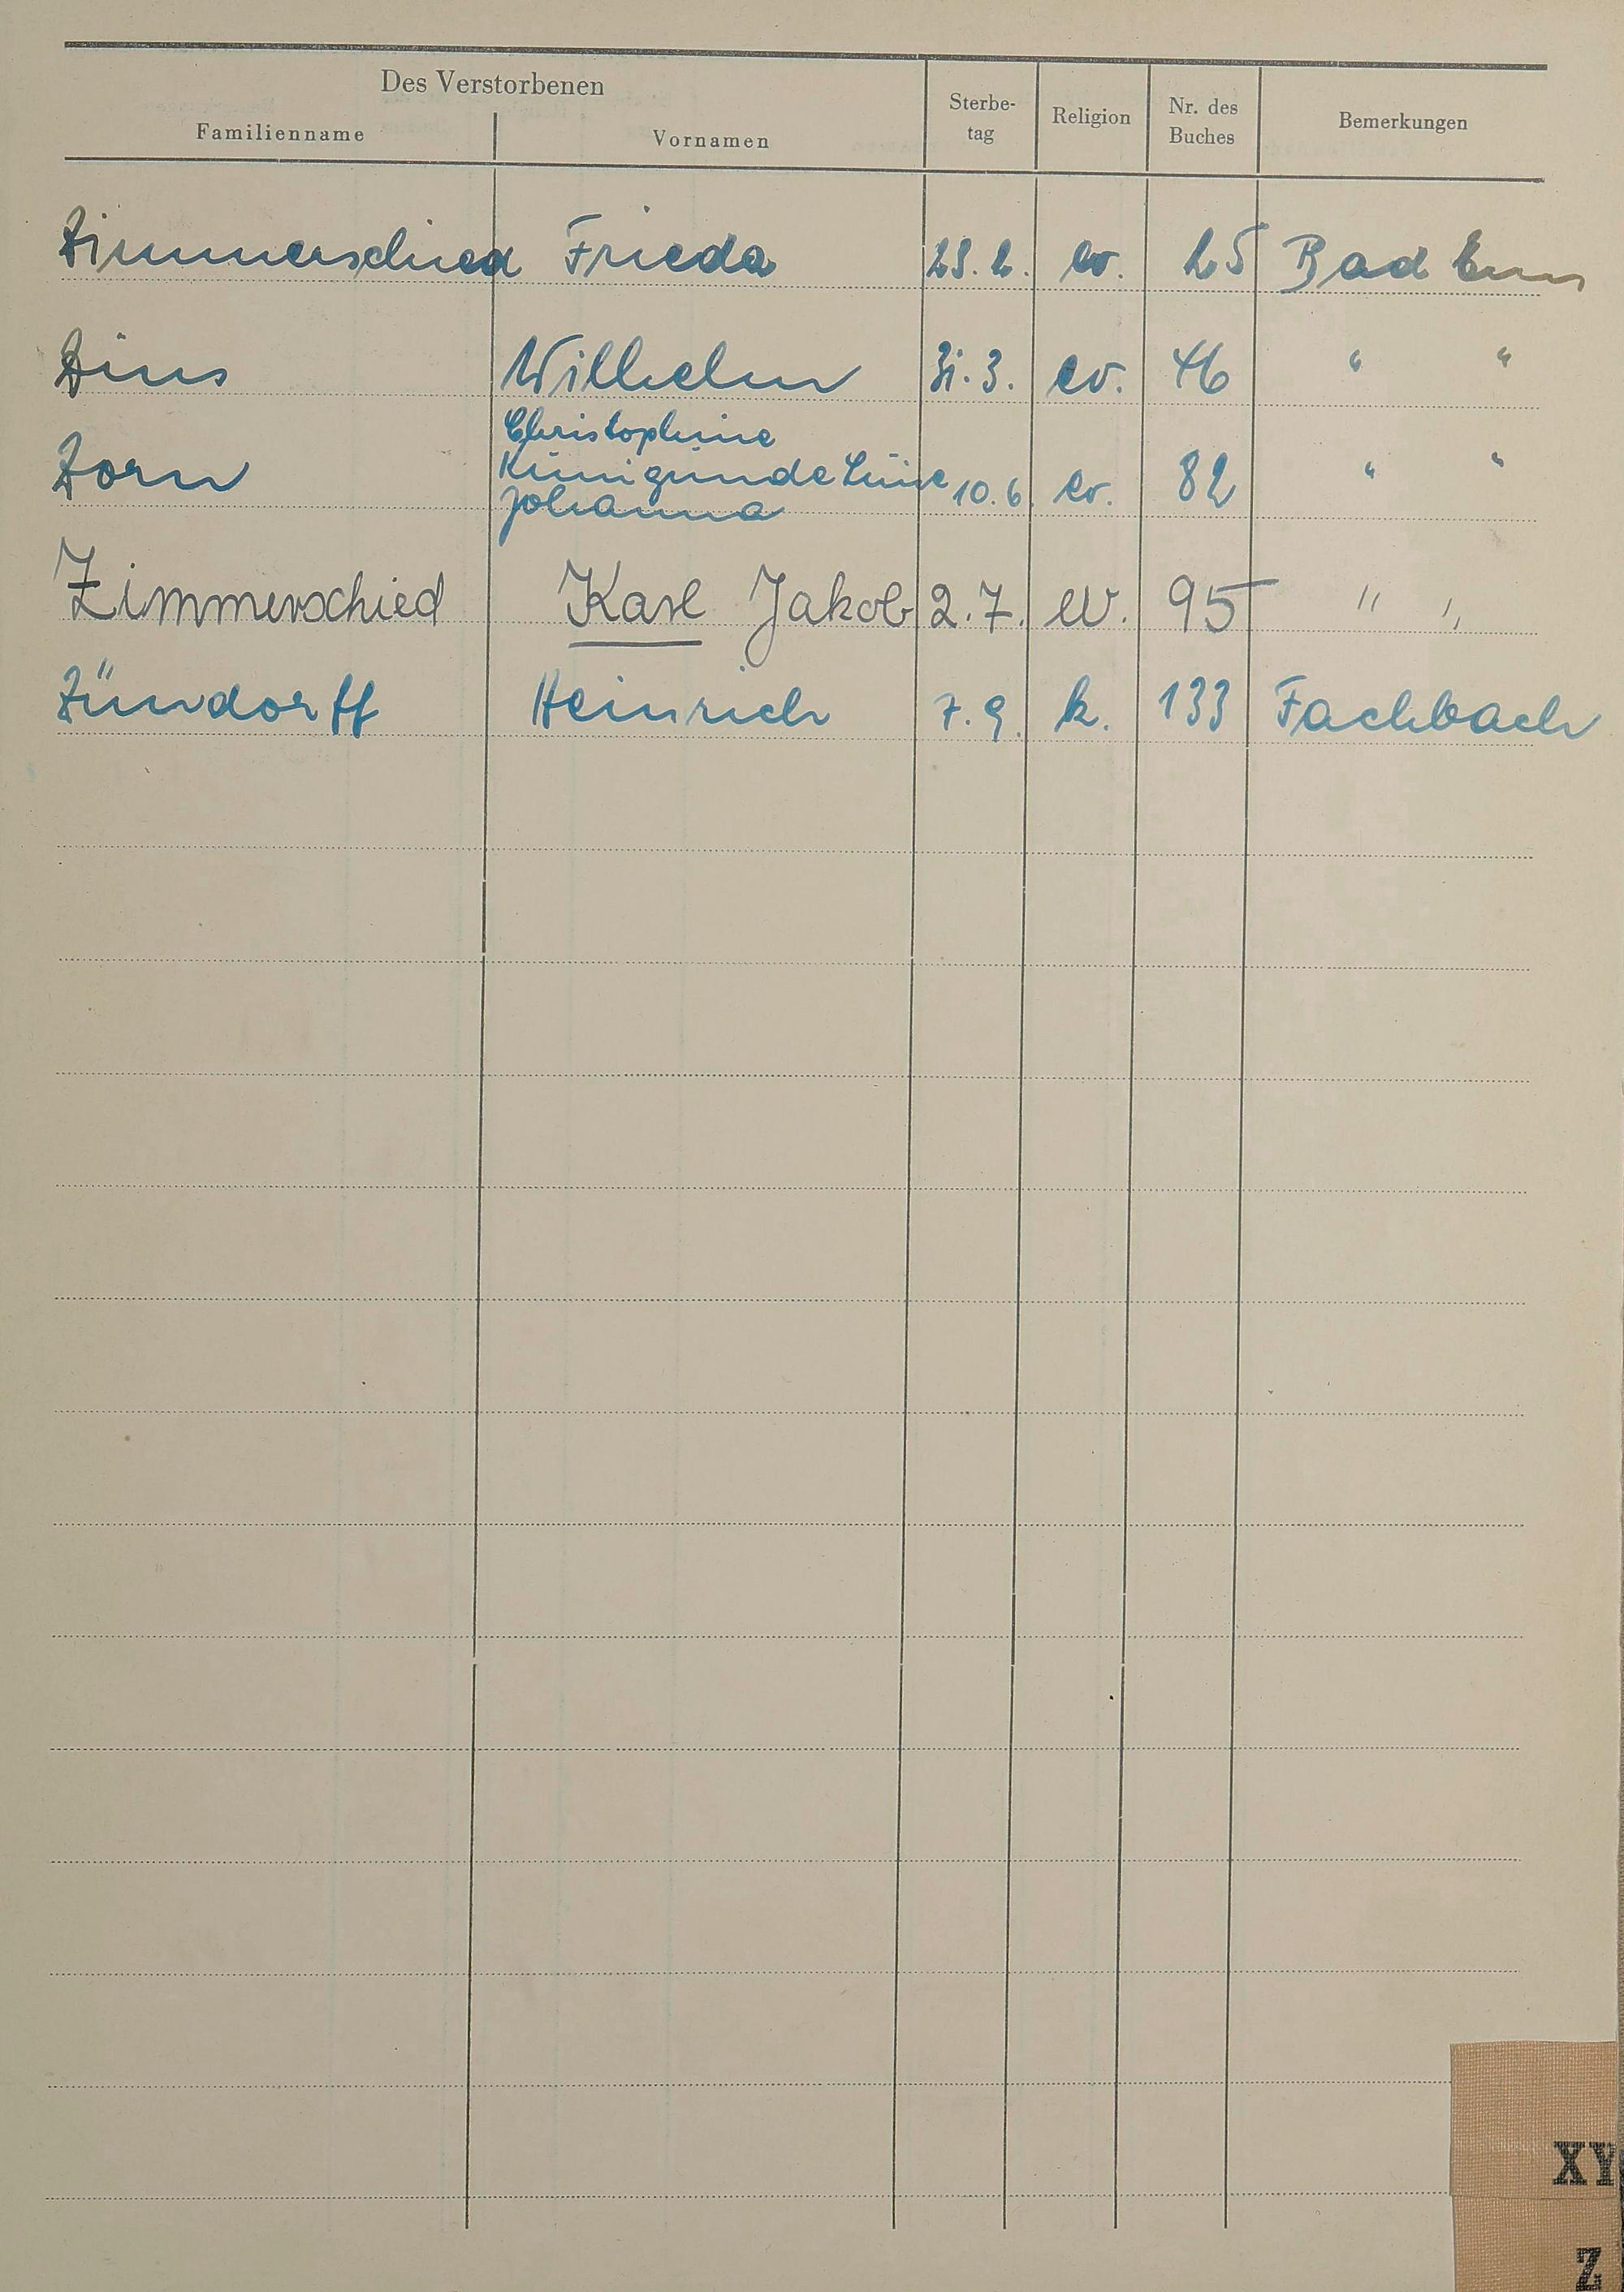 Des Verstorbenen
Familienname Vornamen Sterbe-tag Religion Nr. des Buches Bemerkungen
Zimmerschied Frieda 23.2. ev. 25 Bad Ems
Zins Wilhelm 31.3. ev. 46 " "
Christophine
Zorn Kunigunde Luise 10.6. ev. 82 " "
Johanna
Zimmerschied Karl Jakob 2.7. ev. 95 " "
Zündorff Heinrich 7.9. k. 133 Fachbach
XY
Z